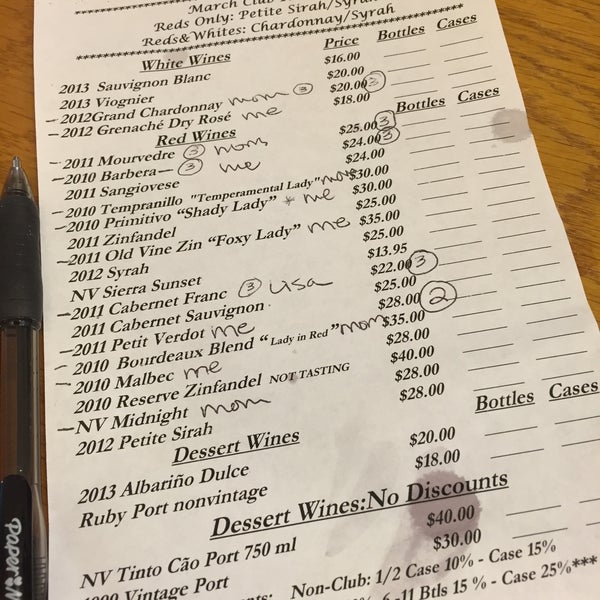 March Club
Reds Only: Petite Sirah/Syrah
Reds&Whites: Chardonnay/Syrah
White Wines Price Bottles Cases
2013 Sauvignon Blanc $16.00
2013 Viognier $20.00
2012 Grand Chardonnay mom 3 $20.00 3
2012 Grenaché Dry Rosé me $18.00
Red Wines Bottles Cases
2011 Mourvedre 3 mom $25.00 3
2010 Barbera 3 me $24.00 3
2011 Sangiovese $24.00
2010 Tempranillo "Temperamental Lady" mom $30.00
2010 Primitivo “Shady Lady” * me $30.00
2011 Zinfandel $25.00
2011 Old Vine Zin “Foxy Lady” me $35.00
2012 Syrah $25.00
NV Sierra Sunset $13.95
2011 Cabernet Franc 3 Lisa $22.00 3
2011 Cabernet Sauvignon $25.00
2011 Petit Verdot me $28.00 2
2010 Bourdeaux Blend “Lady in Red” mom $35.00
2010 Malbec me $28.00
2010 Reserve Zinfandel NOT TASTING $40.00
NV Midnight mom $28.00
2012 Petite Sirah $28.00
Dessert Wines Bottles Cases
2013 Albariño Dulce $20.00
Ruby Port nonvintage $18.00
Dessert Wines:No Discounts
NV Tinto Cão Port 750 ml $40.00
Vintage Port $30.00
Non-Club: 1/2 Case 10% - Case 15%
6-11 Btls 15 % - Case 25%***
Paper